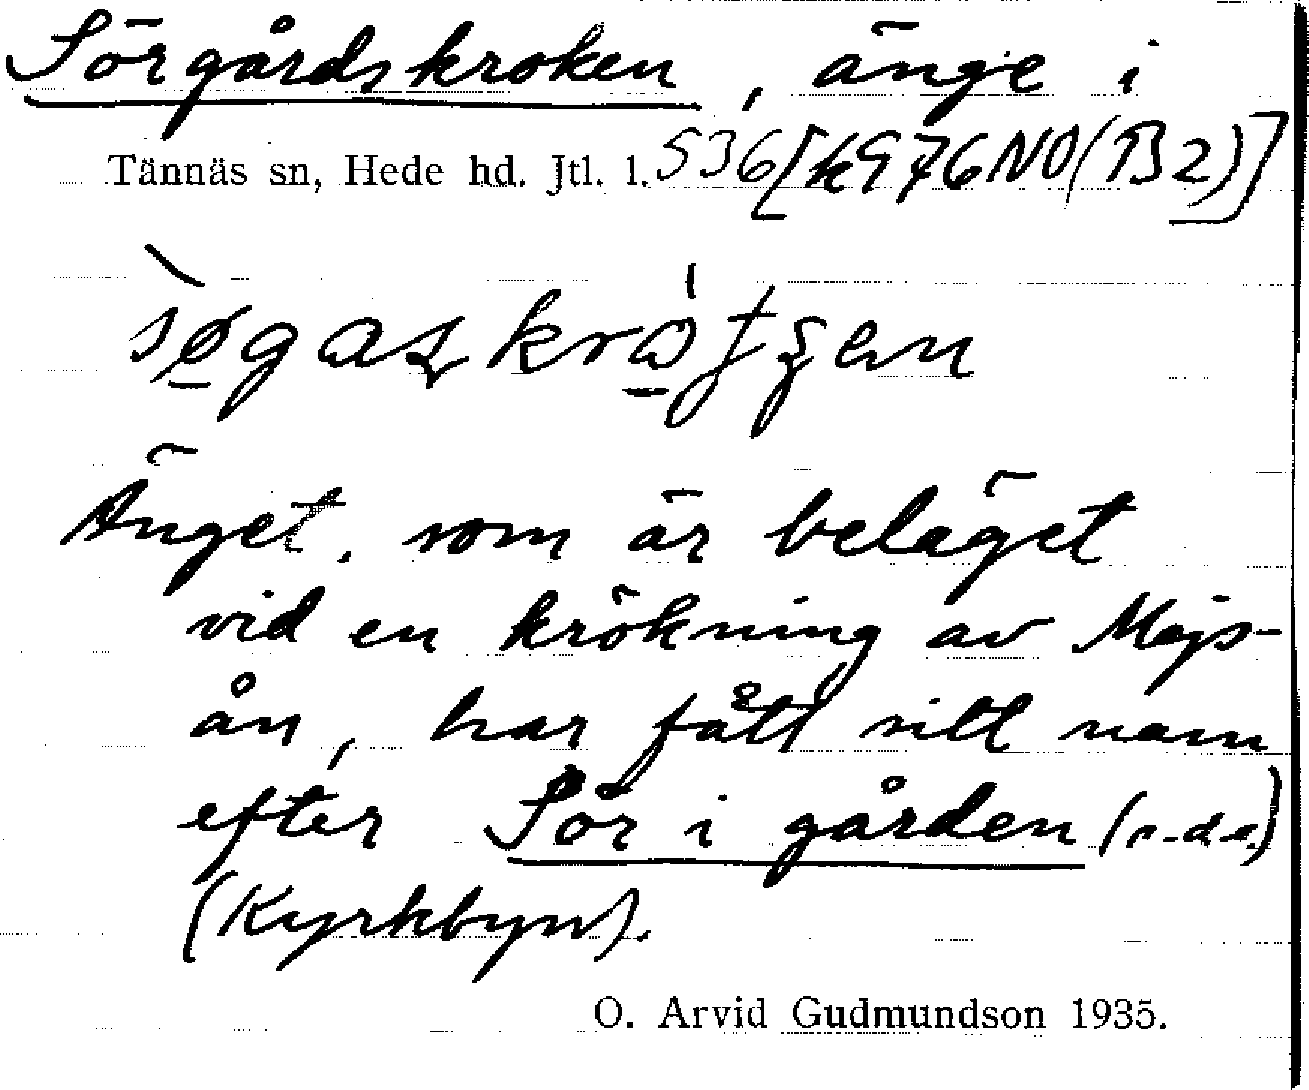 Sörgårdskroken, änge i
Tännäs sn, Hede hd. Jtl. l. 536 [k976NO(B2)]
Änget, som är beläget
vid en krökning av Mejs-
ån, har fått sitt namn
efter Sör i gården (s.d.o.)
(Kyrkbyn).
O. Arvid Gudmundson 1935.